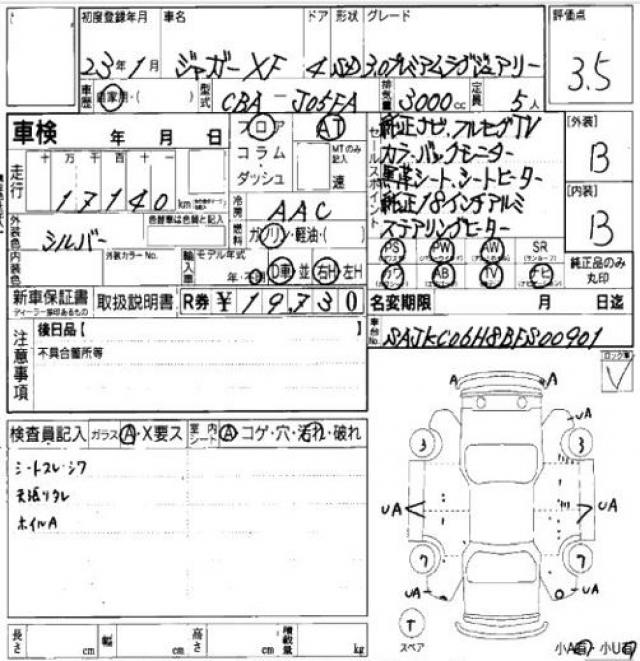 初度登録年月 車名 ドア 形状 グレード 評価点
23年1月 ジャガー XF 4 SD 3.0プレミアムラグジュアリー 3.5
車歴 自家用・( ) 型式 CBA-J05FA 排気量 3000cc 定員 5人
車検 年 月 日 フロア AT セールスポイント 純正ナビ、フルセグTV [外装]
走行 十 万 千 百 十 一 コラム・ MTのみ記入 カラーバックモニター B
17140km ダッシュ 速 黒革シート、シートヒーター [内装]
外装色 シルバー 色替車は色替と記入 冷房 AAC 純正18インチアルミ B
燃料 ガソリン・軽油・( ) ステアリングヒーター
内装色 外装カラーNo. 輸入車 モデル年式 年・不明 D車 並 右H 左H PS PW AW SR 純正品のみ丸印
カワ AB TV ナビ
新車保証書 ディーラー捺印あるもの 取扱説明書 R券 ¥19,730 名変期限 月 日迄
注意事項 後日品【 車台No. SAJKC06H8BFS00901
不具合箇所等
ロック車
検査員記入 ガラス A・X要ス 室内シート A コゲ・穴・汚れ・破れ
シートスレ・シワ
天張りタレ
ホイルA
A A
UA
3 3
UA UA
7 7
UA UA
T
スペア
長さ cm 幅 cm 高さ cm 積載量 kg
小A有 小U有